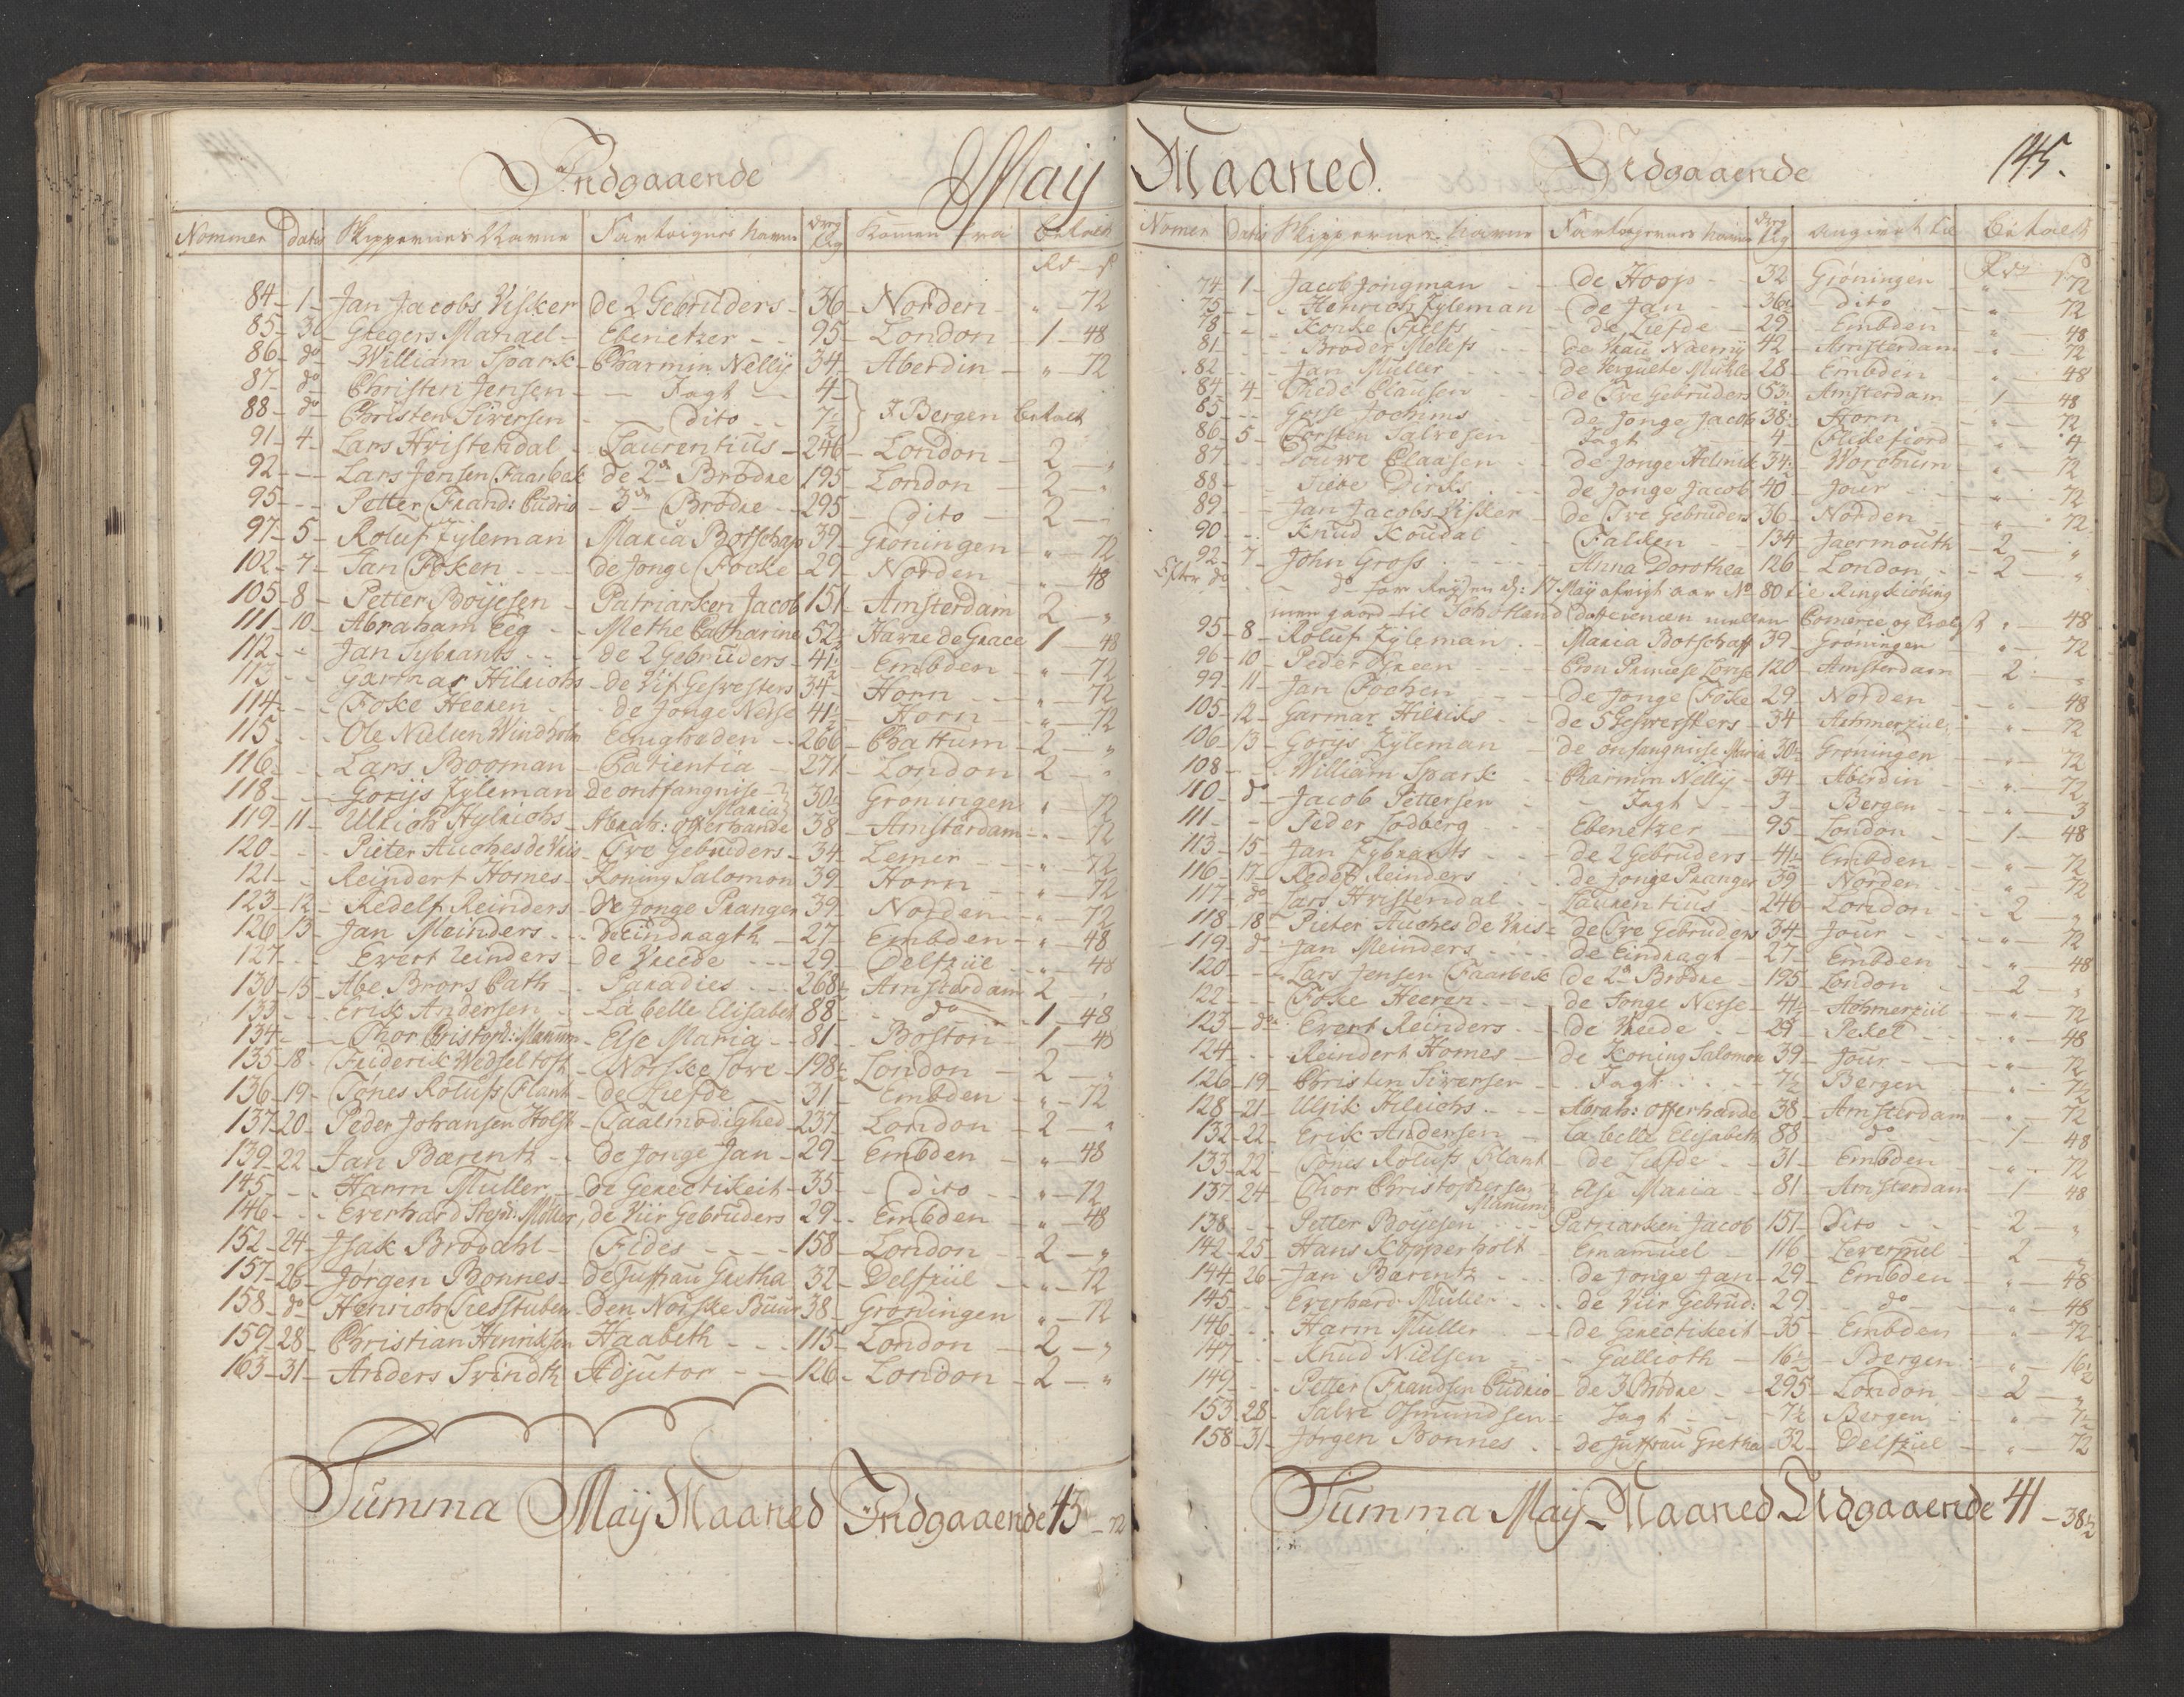 Indgaaende May
Nommer datis Skippernes Navne Fartoignes havne drg lg Komen fra betalt
Rd ß
84 - 1 - Jan Jacobs Visker de 2 Gebrüders - 36 - Norden - " - 72
85 - 3 - Gregers Manael - Ebenetzer - 95 - London - 1 - 48
86 - do - William Spark - Charmin Nellÿ 34 - Aberdin - " - 72
87 - do - Christen Jensen - Jagt - 4 -
88 - do - Christen Siversen - dito - 7½ I Bergen betalt
91 - 4 - Lars Hvistendal - Laurentius - 246 - London - 2 - "
92 - - Lars Jensen Faarbek de 2de Brødre 195 - London - 2 - "
95 - - Petter Frand: Cudrio - 3de Brødre - 295 - dito - 2 - "
97 - 5 - Roluf Zyleman Maria Botschap 39 - Grøningen - " - 72
102 - 7 - Jan Foken - de Jonge Fooke - 29 - Norden - " - 48
105 - 8 - Petter Boÿesen - Patriarken Jacob 151 - Amsterdam 2 - "
111 - 10 - Abraham Eeg - Methe Catharine 52½ Havre de Grace 1 - 48
112 - " Jan Sybrants - de 2 Gebrüders - 41½ - Embden - " - 72
113 - - Garmar Hilrichs - de Vif Gesvesters 34 - Horn - " - 72
114 - - Foke Heeren - de Jonge Nesse 41½ - Horn - " - 72
115 - - Ole Nielsen Windholm Enigheden - 266 - Chattum - 2 - "
116 - - Lars Booman - Patientia - 271 - London 2 - "
118 - - Gorÿs Zyleman de ontfangnise Maria 30½ Grøningen " 72
119 - 11 - Ulrich Hylrichs - Abrah: offerhande 38 - Amsterdam - " - 72
120 - - Pieter Auches de Vris - Tve Gebruders - 34 - Lemer - " - 72
121 - - Reindert Homes - Koning Salomon 39 - Horn - " - 72
123 - 12 - Redelf Reinders - De Jonge Pranger 39 - Norden - " - 72
126 - 13 - Jan Meinders - De Eindragth - 27 - Embden - " - 48
127 - - Evert Reinders - de Vreede - 29 - Delfziil - " - 48
130 - 15 - Abe Brors Bath - Paradies - 268½ Amsterdam 2 - "
133 - - Erik Andersen - La belle Elisabet 88 - do - 1 - 48
134 - - Thor Christoph: Manum - Else Maria - 81 - Boston - 1 - 48
135 - 18 - Friderik Wedseltoft - Norske Love - 198½ London - 2 - "
136 - 19 - Tønes Rolufs Plant - de Liefde - 31 - Embden - " - 72
137 - 20 - Peder Johansen Holst - Taalmodighed - 237 - London - 2 - "
139 - 22 - Jan Barentz - de Jonge Jan - 29 - Embden - " - 48
145 - - Harm Muller - de Gerectikeit - 35 - dito - " - 72
146 - - Everhard Steph: Møller, de Viir Gebrüders 29 - Embden - " - 48
152 - 24 - Isak Brødahl - Fides - 158 - London - 2 - "
157 - 26 - Jørgen Bonnes - de Juffrau Gretha 32 - Delfziil - " - 72
158 - do - Henrich Tiesstuben - Den Norske Buur 38 - Grøningen " - 72
159 - 28 - Christian Henriksen Haabeth - 115 - London - 2 - "
163 - 31 - Anders Svindth Adjutor - 126 - London - 2 - "
Summa Maÿ Maaned Indgaaende 43 - 72
Maaned. Udgaaende 145.
Nomer datis Skippernes havne Fartoyernes havne drg lg angivet til betalt
Rd ß
74 - 1 - Jacob Jongman - de Hoop - 32 Grøningen - " 72
75 - - Henrich Zyleman de Jan - 36½ dito - " 72
78 - - Konke Fleets de Liefde - 29 - Embden - " 48
81 - - Broder Melefs - de Vrau Naemÿ 42 - Amsterdam - " 72
82 - - Jan Müller - de Vergulte Mühle 28 - Embden - " 48
84 - 4 - Thede Clausen - de Tve Gebruders 53½ Amsterdam - 1 - 48
85 - - Gosse Jochims - de Jonge Jacob 38½ Horn - " - 72
86 - 5 - Torsten Salvesen Jagt - 4 Flikefiord - " 4
87 - - Douwe Claasen - de Jonge Helmik 34½ - Worchum - " - 72
88 - - Siebe Dirks - de Jonge Jacob 40 - Jour - " - 72
89 - - Jan Jacobs Visker - de Tve Gebruders 36 - Norden - " - 72
90 - - Knud Koudal - Falken - 134 - Jaermouth - 2 - "
92 - 7 - John Gross - Anna Dorothea 126 - London - 2 - "
Efter do - do for Reÿsen d: 17 Maÿ afvigt aar No 80 til Ringkiøbing
men gaaed til Johotland Differencen mellem Comerce og 48
95 - 8 - Roluf Zyleman - Maria Botschaff 39 - Grøningen - " - 72
96 - 10 - Peder Green - Cron Princese Lovise 120 - Amsterdam - 2 - "
99 - 11 - Jan Fochen - de Jonge Foke 29 - Norden - " 48
105 - 12 - Garmar Hilriks - de 5 Gesversters - 34 - Aehmerziil - " 72
106 - 13 - Gorÿs Zÿleman - de onfangnisse Maria 30½ Grøningen - " 72
108 - - William Spark - Charmin Nellÿ - 34 - Aberdin - " - 72
110 - do - Jacob Pettersen - Jagt - 3 - Bergen - " 3
111 - - Peder Lodberg - Ebenetzer - 95 - London - 1 - 48
113 - 15 - Jan Sybrants - de 2 Gebruders - 41½ Embden - " - 72
116 - 17 - Redelf Reinders - de Jonge Pranger 39 - Norden - " - 72
117 - do - Lars Hvistendal - Laurentius - 246 - London - 2 - "
118 - 18 - Pieter Auches de Vris - de Tve Gebruders 34 - Jour - " - 72
119 - do - Jan Meinders - de Eindragt - 27 - Embden - " 48
120 - - Lars Jensen Faarbek de 2de Brødre - 195 London - 2 - "
122 - - Foke Heeren - de Jonge Nesse - 41½ Aehmerziil - " - 72
123 - do - Evert Reinders - de Vreede - 29 - Pekel - " - 48
124 - - Reindert Homes - de Koning Salomon 39 - Jour - " - 72
126 - 19 - Christen Siversen - Jagt - 7½ Bergen - " - 7½
128 - 21 - Ulrik Hilrichs - Abrah: offerhande 38 - Amsterdam - " - 72
132 - 22 - Erik Andersen - La belle Elisabeth 88 - do - 1 - 48
133 - 22 - Tønis Rolufs Plant - de Liefde - 31 - Embden - " - 72
137 - 24 - Thor Christophersen Manum - Else Maria - 81 - Amsterdam - 1 - 48
138 - - Petter Boÿesen - Patriarken Jacob 151 - Dito - 2 - "
142 - 25 - Hans Kopperholt - Emamuel - 116 - Leverpuel - 2 - "
144 - 26 - Jan Barentz - de Jonge Jan - 29 - Embden - " - 48
145 - - Everhard Muller - de Viir Gebrud: 29 - do - " - 48
146 - - Harm Muller - de Gerectikeit - 35 - Embden - " - 72
147 - - Knud Nielsen - Gallioth - 16½ - Bergen - " - 16½
149 - - Petter Frandsen Cudrio - de 3 Brødre - 295 - London - 2 - "
153 - 28 - Salve Osmundsen - Jagt - 7½ Bergen - " - 7½
158 - 31 - Jørgen Bonnes - de Juffrau Gretha - 32 - Delfziil - " - 72
Summa Maÿ Maaned Udgaaende 41 - 38½